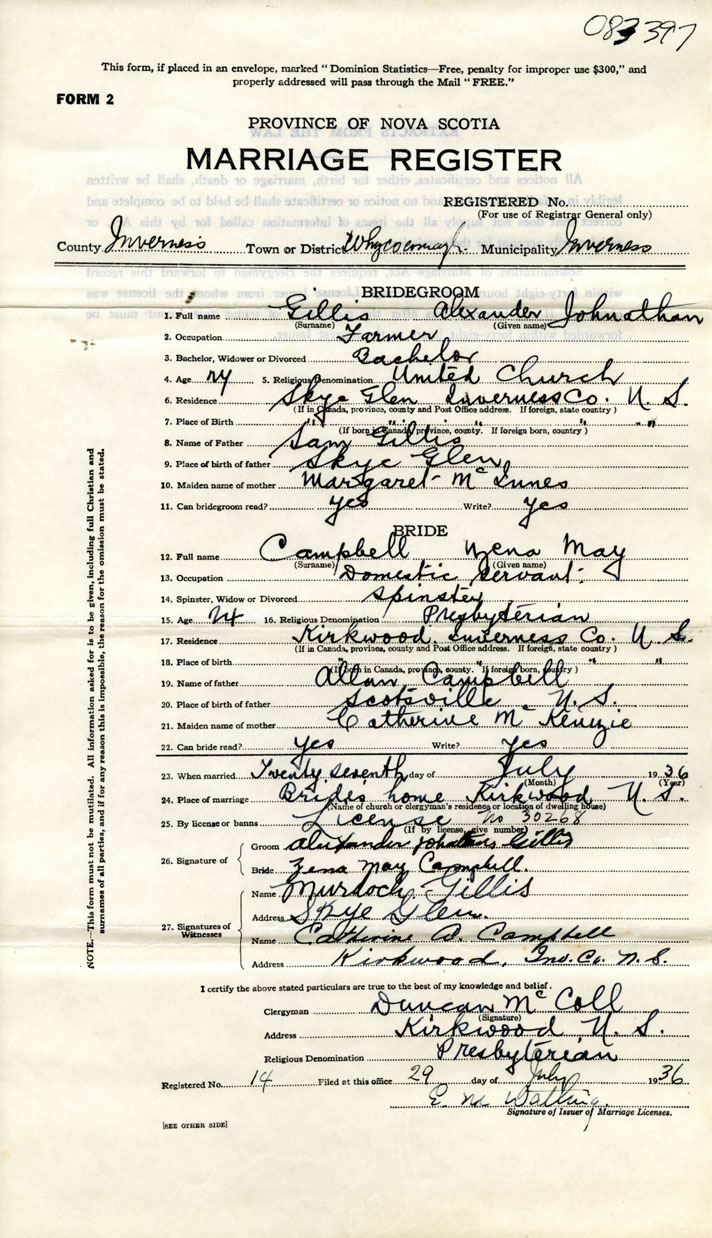 083397
This form, if placed in an envelope, marked "Dominion Statistics—Free, penalty for improper use $300," and
properly addressed will pass through the Mail "FREE."
FORM 2
PROVINCE OF NOVA SCOTIA
MARRIAGE REGISTER
REGISTERED No.
(For use of Registrar General only)
County Inverness Town or District Whycocomagh Municipality Inverness
BRIDEGROOM
1. Full name Gillis Alexander Johnathan
(Surname) (Given name)
2. Occupation Farmer
3. Bachelor, Widower or Divorced Bachelor
4. Age 5. Religious Denomination United Church
6. Residence Skye Glen Inverness Co. N. S.
(If in Canada, province, county and Post Office address. If foreign, state country)
7. Place of Birth " " " "
(If born in Canada, province, county. If foreign born, country)
8. Name of Father Sam Gillis
9. Place of birth of father Skye Glen
10. Maiden name of mother Margaret McInnes
11. Can bridegroom read? yes Write? yes
BRIDE
12. Full name Campbell Zena May
(Surname) (Given name)
13. Occupation Domestic Servant.
14. Spinster, Widow or Divorced Spinster
15. Age 24 16. Religious Denomination Presbyterian
17. Residence Kirkwood, Inverness Co. N. S.
(If in Canada, province, county and Post Office address. If foreign, state country)
18. Place of birth " " " "
(If born in Canada, province, county. If foreign born, country)
19. Name of father Allan Campbell
20. Place of birth of father Scotsville N. S.
21. Maiden name of mother Catherine McKenzie
22. Can bride read? yes Write? yes
23. When married Twenty seventh day of July 1936
(Month) (Year)
24. Place of marriage Brides home Kirkwood N. S.
(Name of church or clergyman's residence or location of dwelling house)
25. By license or banns License No 30268
(If by license, give number)
26. Signature of
Groom Alexander Johathan Gillis
Bride Zena May Campbell.
27. Signatures of Witnesses
Name Murdoch Gillis
Address Skye Glen.
Name Catherine D. Campbell
Address Kirkwood, Inv. Co. N. S.
I certify the above stated particulars are true to the best of my knowledge and belief.
Clergyman Duncan McColl
(Signature)
Address Kirkwood, N. S.
Religious Denomination Presbyterian
Registered No. 14 Filed at this office 29 day of July 1936
E. M. Watling
Signature of Issuer of Marriage Licenses.
[SEE OTHER SIDE]
NOTE.—This form must not be mutilated. All information asked for is to be given, including full Christian and
surnames of all parties, and if for any reason this is impossible, the reason for the omission must be stated.